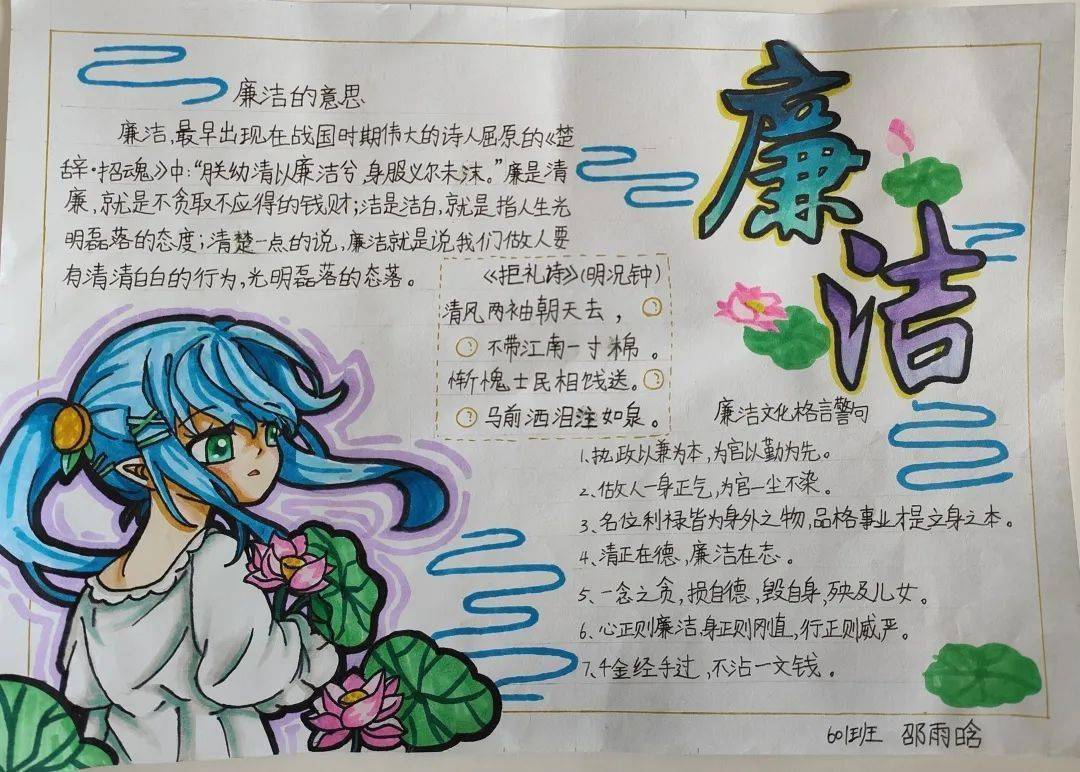 廉洁
廉洁的意思
廉洁,最早出现在战国时期伟大的诗人屈原的《楚
辞·招魂》中:“朕幼清以廉洁兮,身服义尔未沫。”廉是清
廉,就是不贪取不应得的钱财;洁是洁白,就是指人生光
明磊落的态度;清楚一点的说,廉洁就是说我们做人要
有清清白白的行为,光明磊落的态落。
《拒礼诗》(明况钟)
清风两袖朝天去,
不带江南一寸棉。
惭愧士民相饯送。
马前洒泪注如泉。
廉洁文化格言警句
1、执政以兼为本,为官以勤为先。
2、做人一身正气,为官一尘不染。
3、名位利禄皆为身外之物,品格事业才是立身之本。
4、清正在德,廉洁在志。
5、一念之贪,损自德,毁自身,殃及儿女。
6、心正则廉洁,身正则刚值,行正则威严。
7、千金经手过,不沾一文钱。
601班 邵雨晗